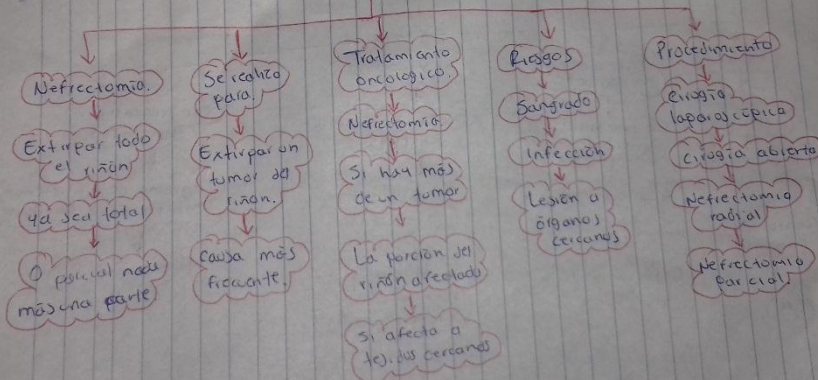 Nefrectomia.
Extirpar todo
el riñón
ya sea total
O parcial nada
más una parte
Se realiza
para.
Extirpar un
tumor del
riñon.
causa más
frecuente.
Tratamiento
oncologico.
Nefrectomia.
Si hay más
de un tumor
La porción del
riñón afectado
Si afecta a
tejidos cercanos
Riesgos
Sangrado
Infección
Lesión a
órganos
cercanos
Procedimiento
cirogía
laparoscópica
cirogía abierta
Nefrectomia
radial
Nefrectomia
parcial.